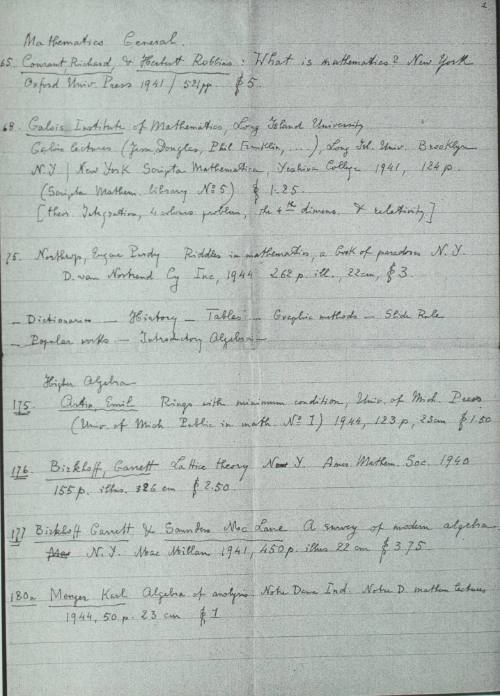 2
Mathematics General.
65. Courant, Richard & Herbert Robbins: What is mathematics? New York
Oxford Univ. Press 1941 / 521 pp. $5.
68. Galois Institute of Mathematics, Long Island University
Galois lectures (Jesse Douglas, Phil. Franklin, ...), Long Isl. Univ. Brooklyn
N.Y. | New York Scripta Mathematica, Yeshiva College 1941, 124 p.
(Scripta Mathem. library No 5) $ 1.25.
[theor. Integration, 4 colours problem, the 4th dimens. & relativity]
75. Northrop, Eugene Purdy Riddles in mathematics, a book of paradoxes N.Y.
D. van Nostrand Cy Inc, 1944 262 p. ill., 22cm, $3.
- Dictionaries - History - Tables - Graphic methods - Slide Rule
- Popular works - Introductory Algebra -
Higher Algebra
175. Artin, Emil Rings with minimum condition, Univ. of Mich. Press
(Univ. of Mich. Public in math. No 1) 1944, 123 p, 23cm $1.50
176. Birkhoff, Garrett Lattice theory N.Y. Amer. Mathem. Soc. 1940
155 p. illus. 26 cm $2.50
177 Birkhoff Garrett & Saunders Mac Lane A survey of modern algebra
N.Y. Mac Millan 1941, 450 p. illus 22 cm $3.75
180a Menger Karl Algebra of analysis Notre Dame Ind. Notre D. mathem lectures
1944, 50 p. 23 cm $1